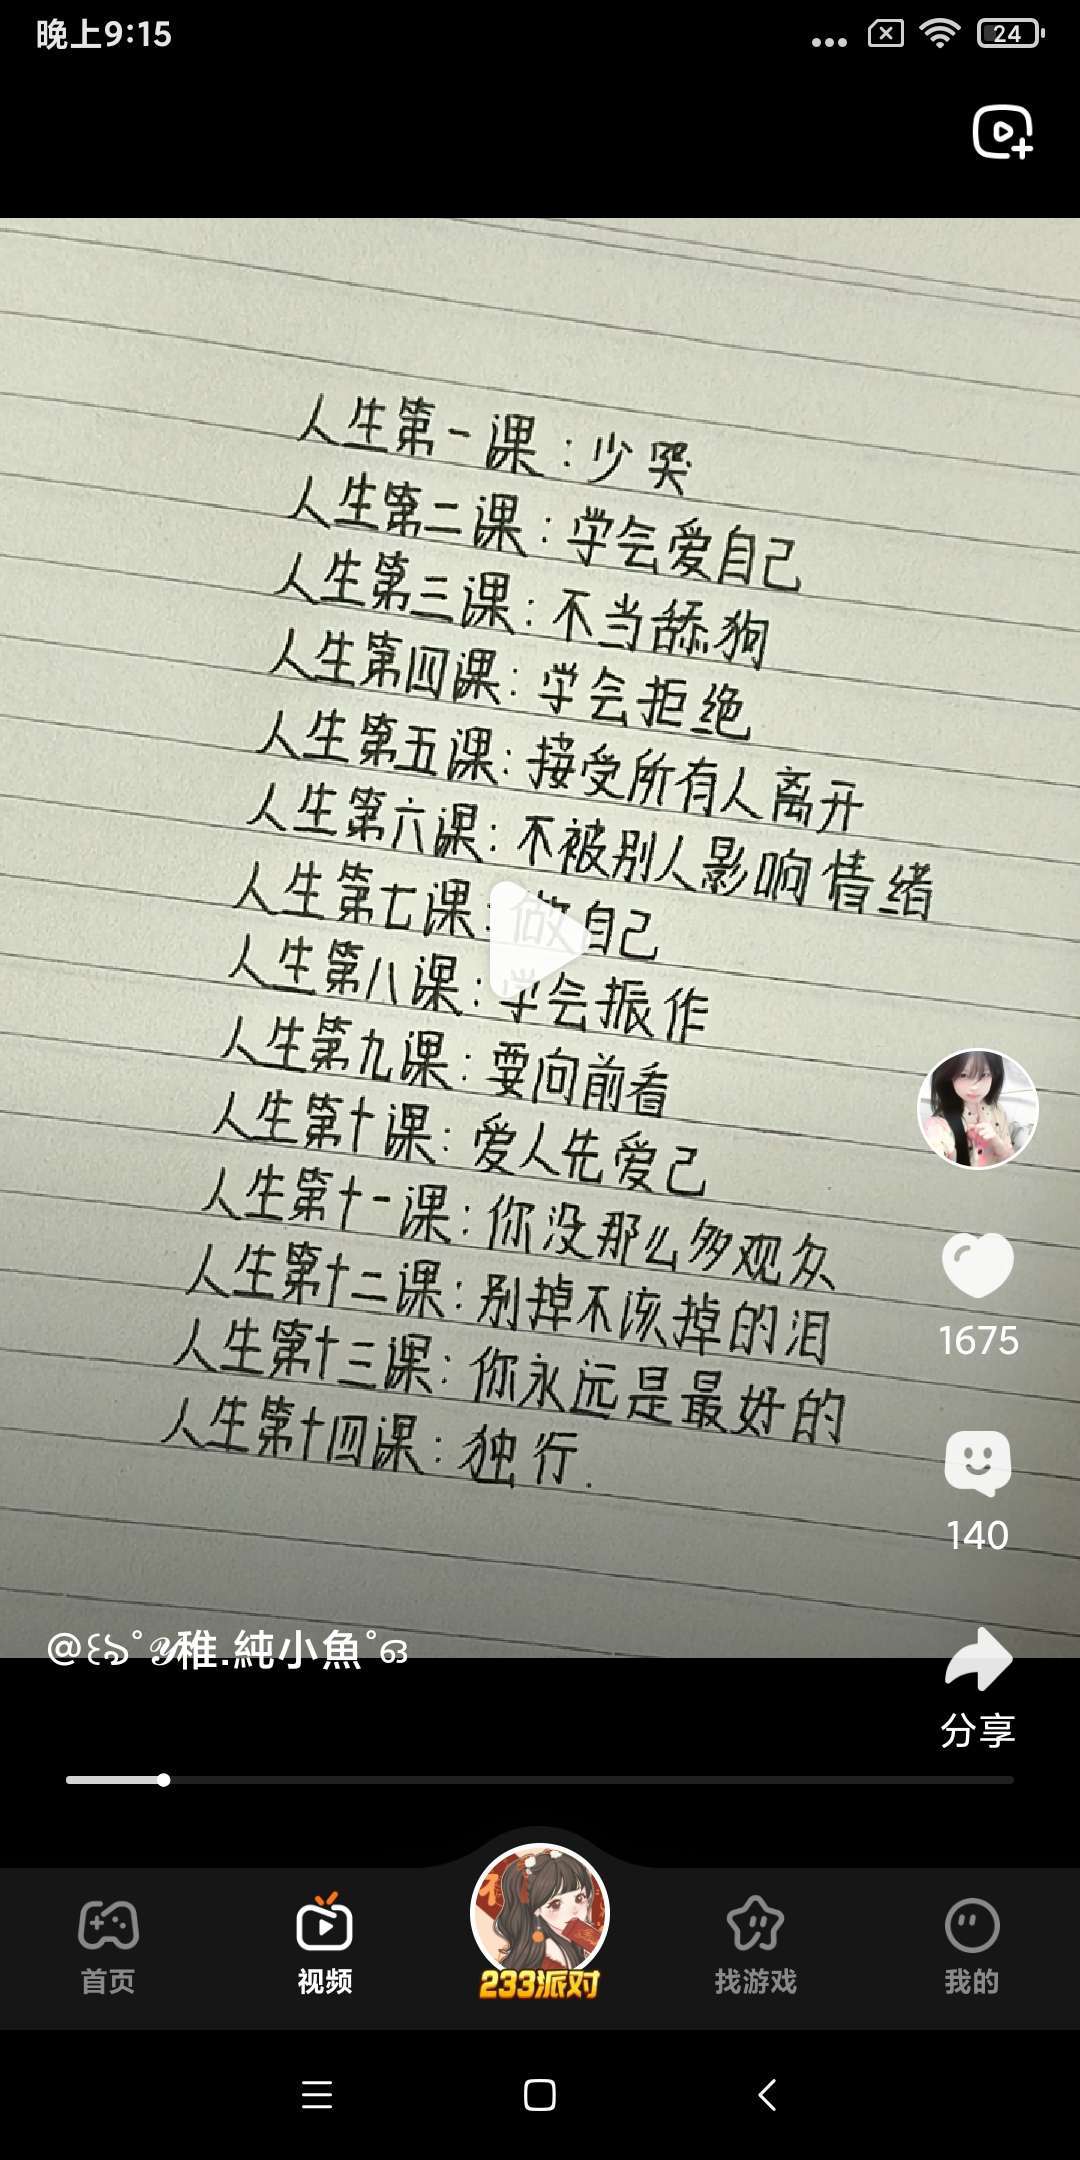 晚上9:15
24
人生第一课:少哭
人生第二课:学会爱自己
人生第三课:不当舔狗
人生第四课:学会拒绝
人生第五课:接受所有人离开
人生第六课:不被别人影响情绪
人生第七课:做自己
人生第八课:学会振作
人生第九课:要向前看
人生第十课:爱人先爱己
人生第十一课:你没那么多观众
人生第十二课:别掉不该掉的泪
人生第十三课:你永远是最好的
人生第十四课:独行.
1675
140
@꒰ঌ˚𝒴稚.純小魚˚໒
分享
233派对
首页
视频
找游戏
我的